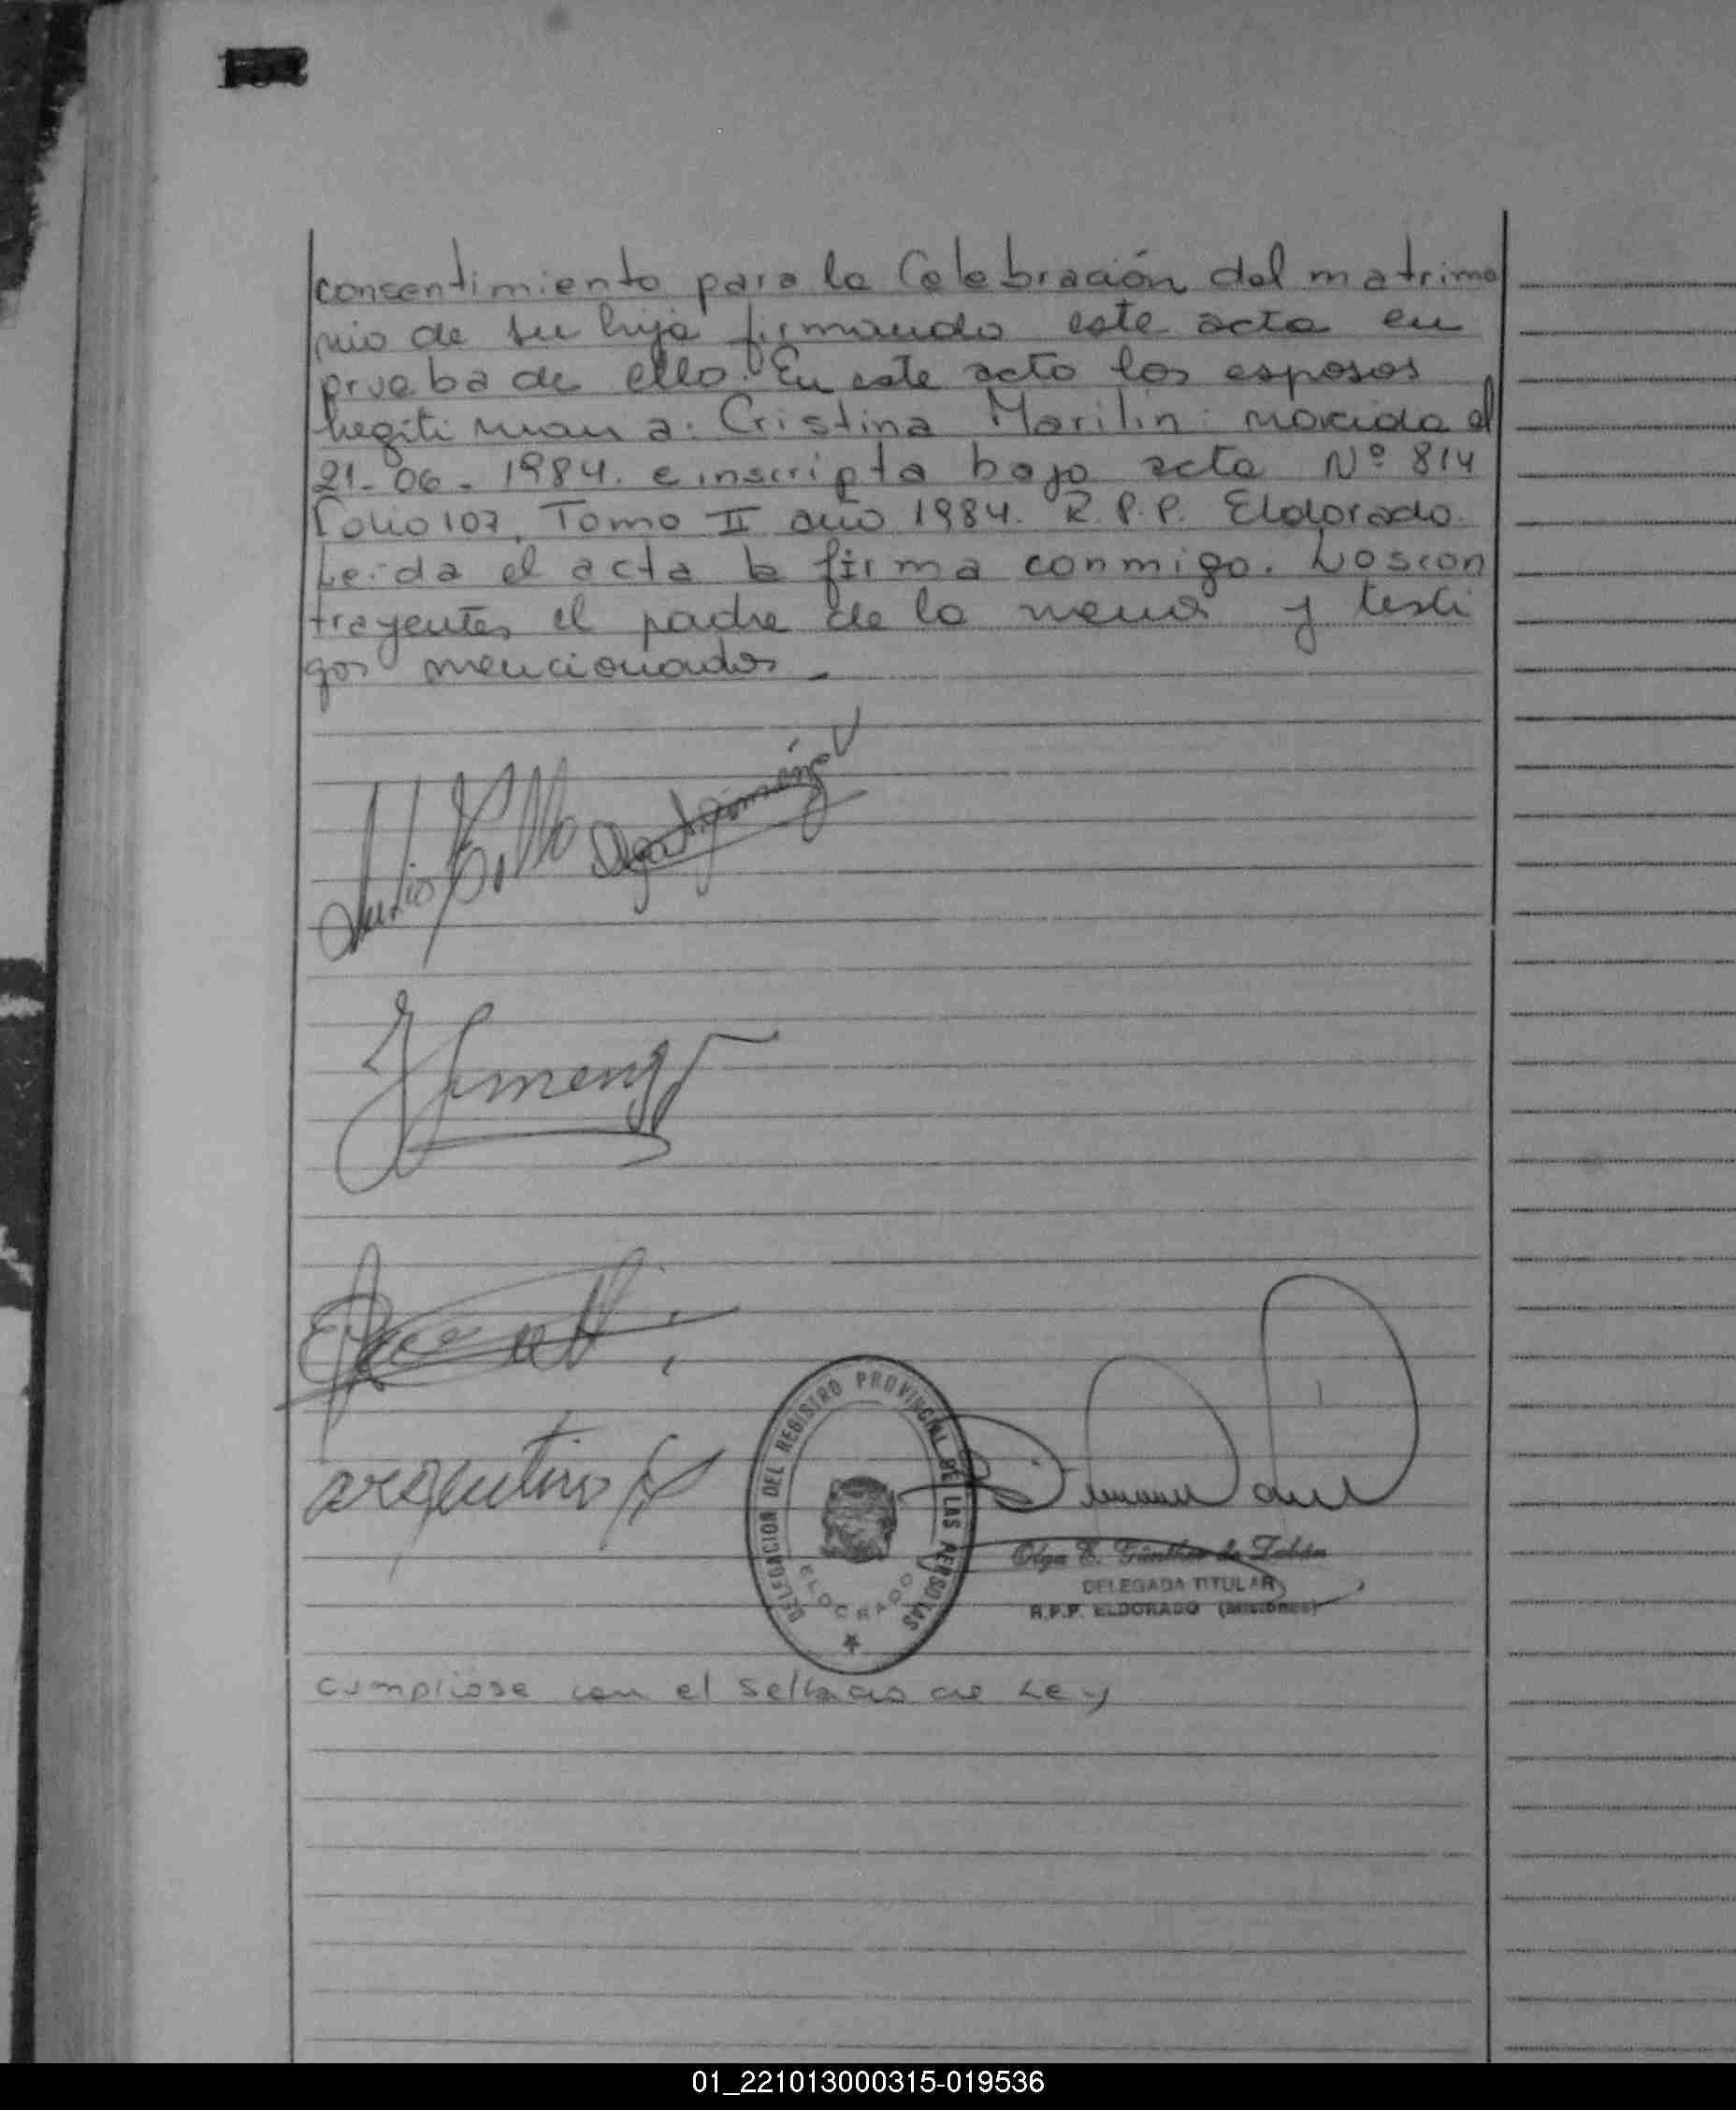 consentimiento para la Celebración del matrimo
nio de su hija firmando este acta en
prueba de ello. En este acto los esposos
legitiman a: Cristina Marilin: nacida el
21-06-1984. e inscripta bajo acta Nº 814
Folio 107, Tomo II año 1984. R.P.P. Eldorado.
Leída el acta la firma conmigo. Los con
trayentes el padre de la menor y testi
gos mencionados.
Olga Giménez
Gimenez
argentino
DELEGACION DEL REGISTRO PROVINCIAL DE LAS PERSONAS
ELDORADO
Olga E. Günther de
DELEGADA TITULAR
R.P.P. ELDORADO (Misiones)
Cumpliose con el Sellado de Ley
01_221013000315-019536